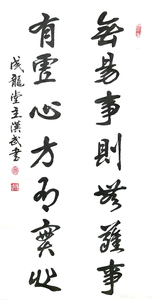 無易事則無難事
有虛心方有實心
成龍堂主漢武書